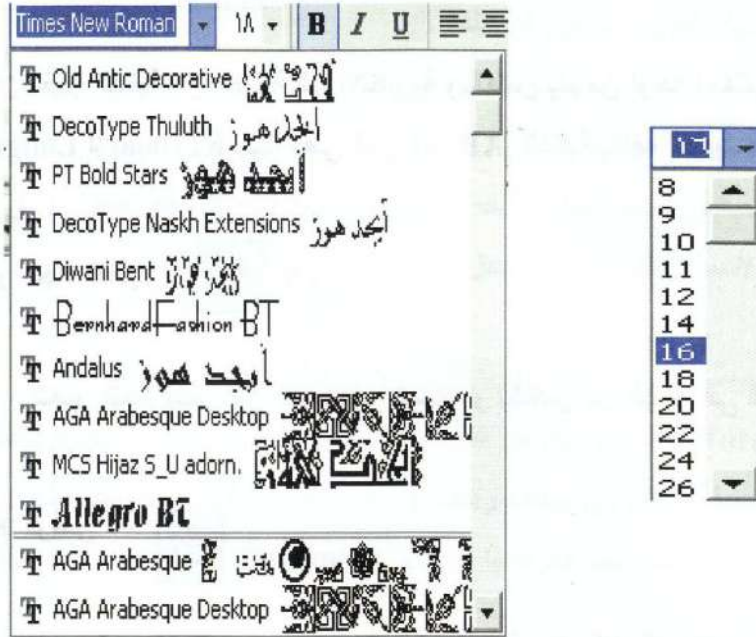 Times New Roman ١٨ B I U
Old Antic Decorative
DecoType Thuluth أبجد هوز
PT Bold Stars أبجد هوز
DecoType Naskh Extensions أبجد هوز
Diwani Bent
BernhardFashion BT
Andalus أبجد هوز
AGA Arabesque Desktop
MCS Hijaz S_U adorn.
Allegro BT
AGA Arabesque
AGA Arabesque Desktop
١٦
8
9
10
11
12
14
16
18
20
22
24
26